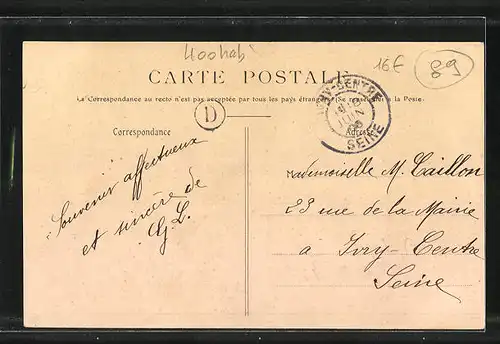 400 hab
16€
89
CARTE POSTALE
La Correspondance au recto n'est pas acceptée par tous les pays étrangers (Se renseigner à la Poste.
D
IVRY-CENTRE
SEINE
Correspondance
Adresse
Souvenir affectueux
et sincère de
G. L.
Mademoiselle M. Caillon
23 rue de la Mairie
à Ivry-Centre
Seine